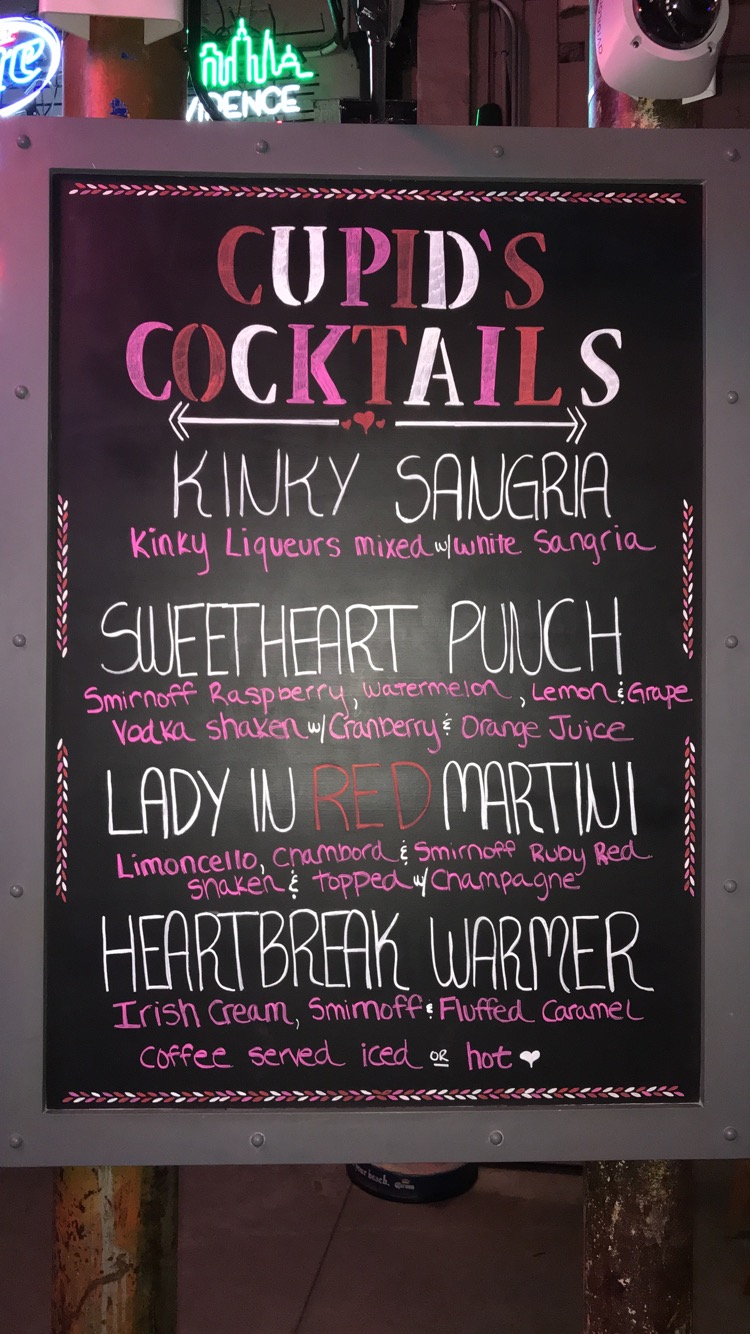 VIDENCE
CUPID'S
COCKTAILS
KINKY SANGRIA
Kinky Liqueurs mixed w/ white Sangria
SWEETHEART PUNCH
Smirnoff Raspberry, watermelon, Lemon & Grape
Vodka shaken w/ Cranberry & Orange Juice
LADY IN RED MARTINI
Limoncello, Chambord & Smirnoff Ruby Red
shaken & topped w/ Champagne
HEARTBREAK WARMER
Irish Cream, Smirnoff & Fluffed Caramel
coffee served iced OR hot
beach. Corona